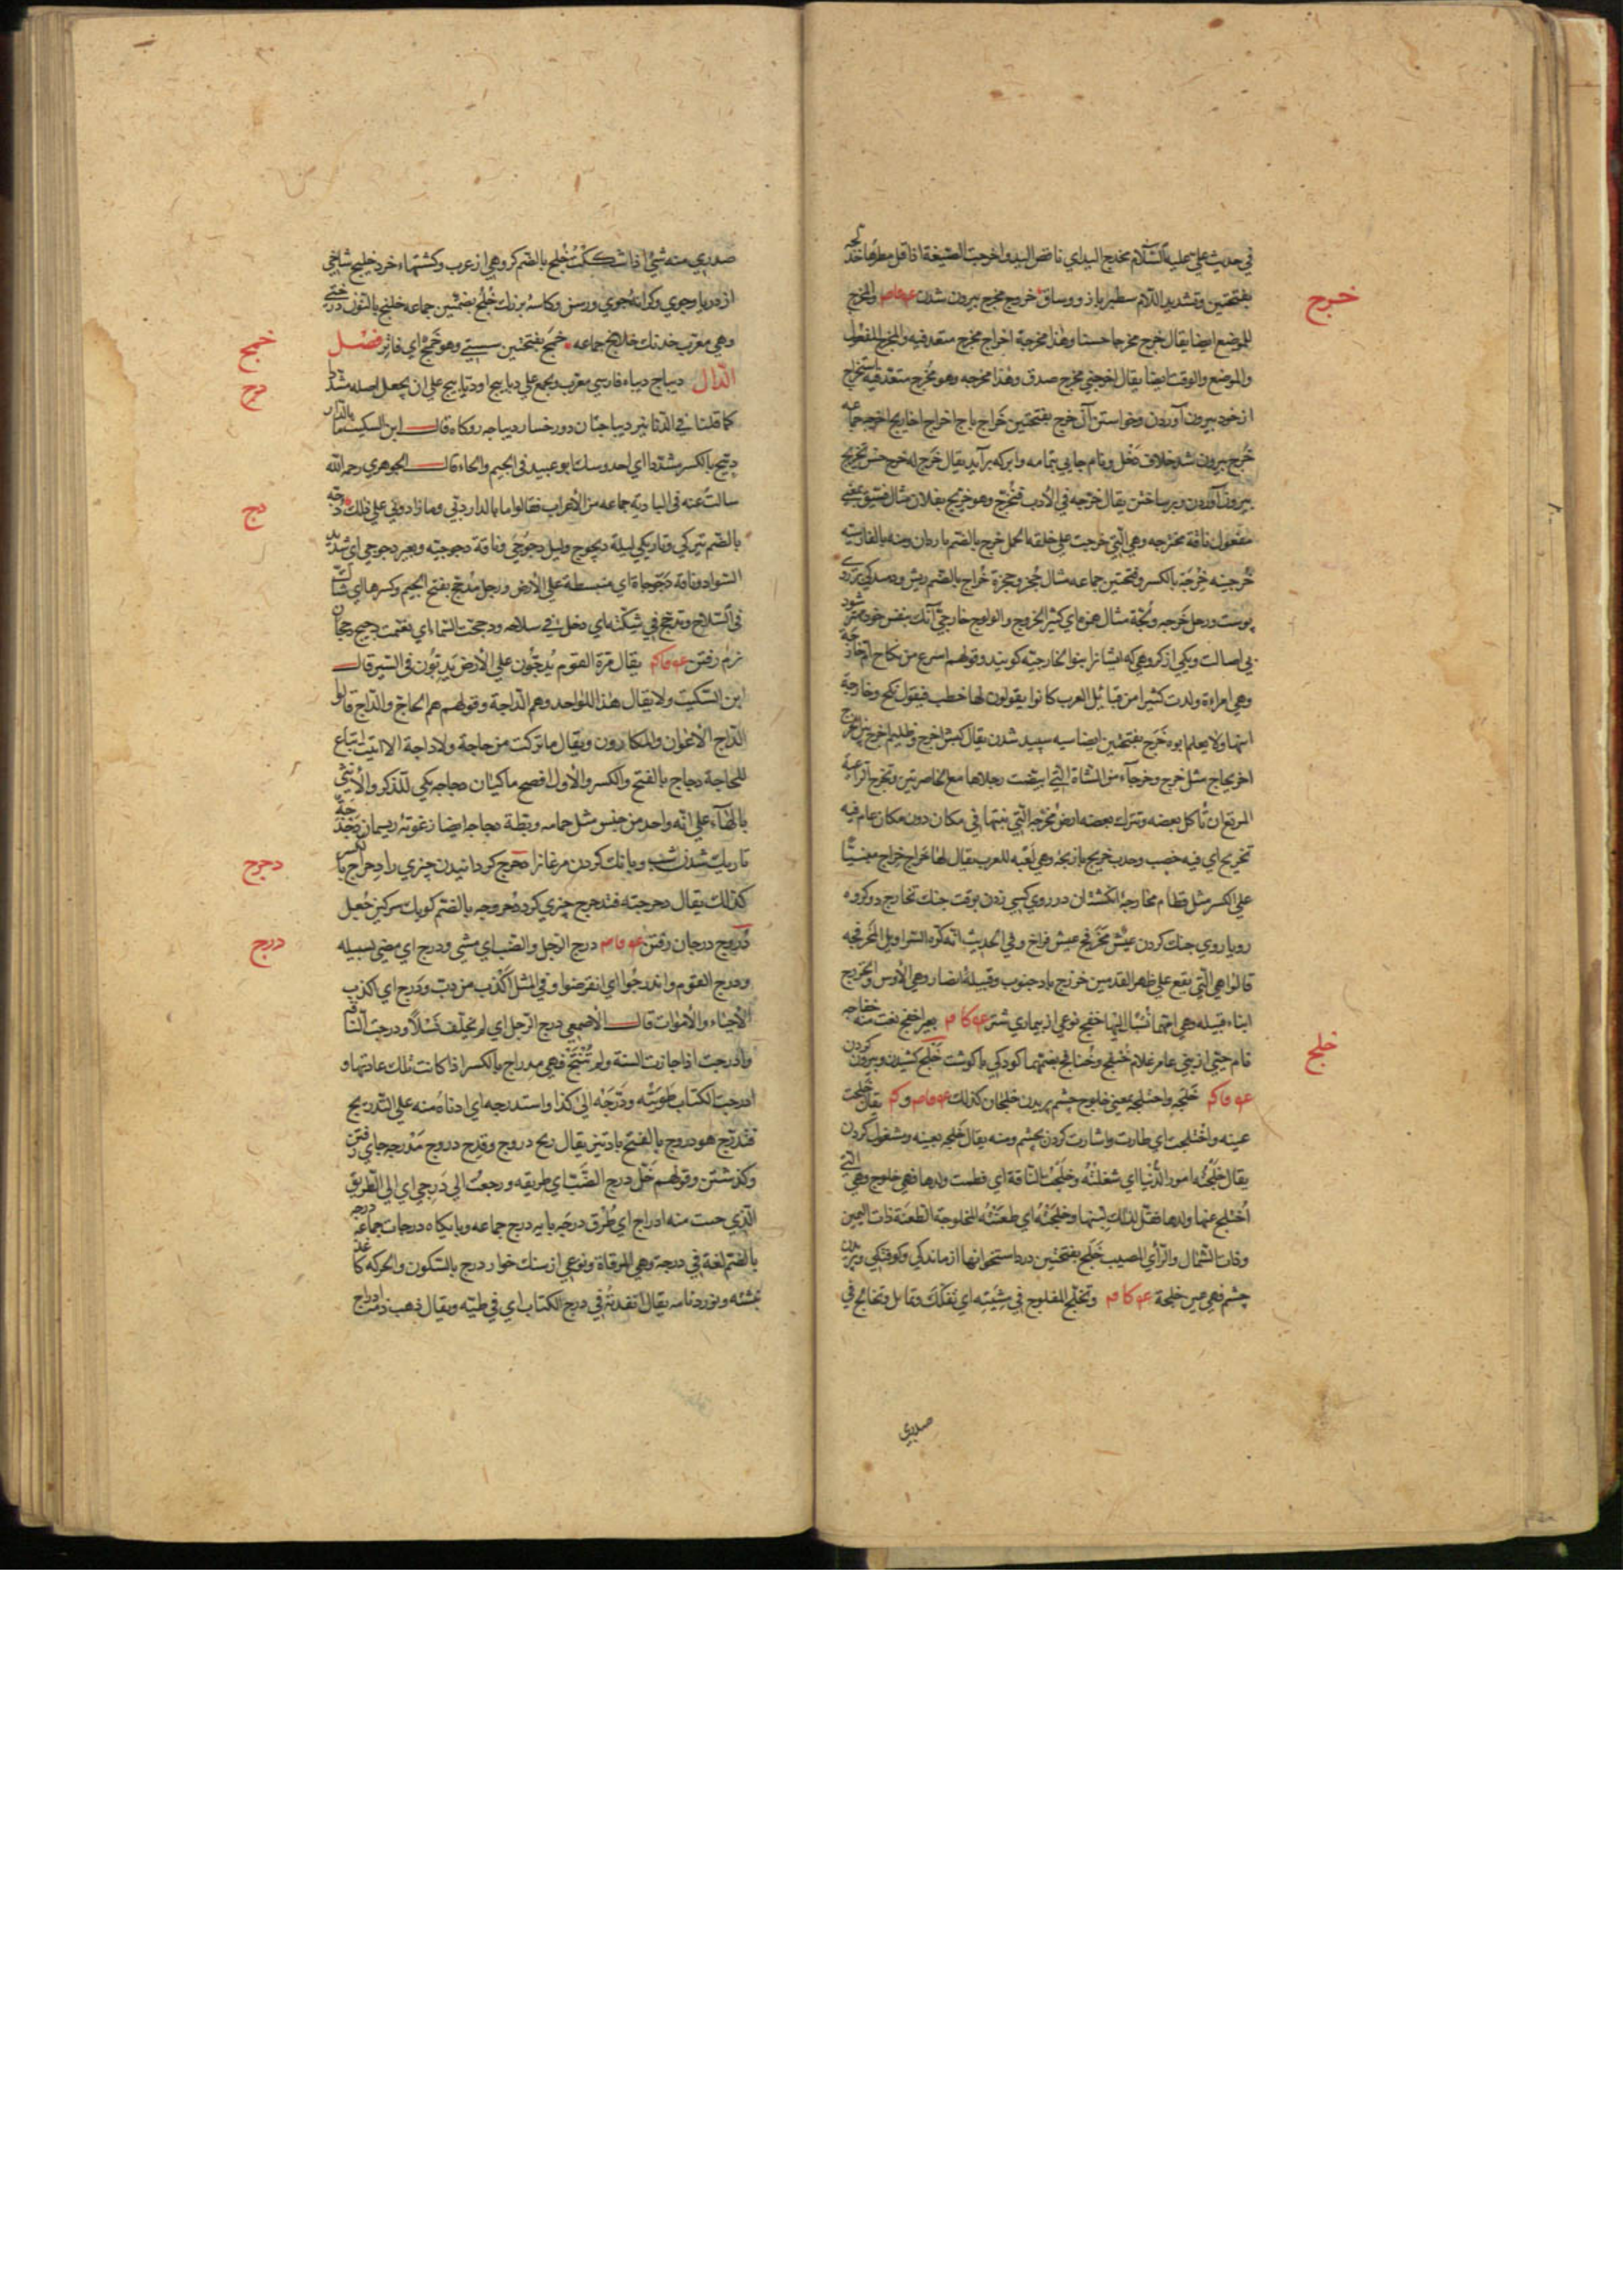 في حديث علي عليه السلام مخدج اليد اي ناقص اليد واخدجت الصيفة اذا قل مطرها خدلجه
خرج
بفتحتين وتشديد اللام سطبر بازو وساق خروج مخرج بيرون شدن والمخرج
للموضع ايضا يقال خرج مخرجا حسنا وهذا مخرجه اخراج مخرج متعد فيه والمخرج للمفعول
والموضع والوقت ايضا يقال اخرجني مخرج صدق وهذا مخرجه وهو مخرج متعد فيه استخراج
از خود بيرون آوردن وخواستن آن خرج بفتحتين خراج باج اخراج اخاريج اخرجه جماعه
خرج بيرون شد خلاف دخل ونام جايي بيمامه وابر كه برآيد يقال خرج له خرج حسن تخريج
بيرون آوردن وبر ساختن يقال خرجه في الأدب فتخرج وهو خريج بفلان مثال فسيق بمعني
مفعول ناقة مخترجه وهي التي خرجت علي خلقه الجمل خرج بالضم باردان ومنه بالفارسيه
خرجينه خرجة بالكسر وفتحتين جماعه مثال جحر وجحرة خراج بالضم ريش ودمل كي بر روي
پوست ورجل خرجه ولجة مثال همزة اي كثير الخروج والولوج خارجي آنك بنفس خود مهتر شود
بي اصالت ويكي از كروهي كه ايشانرا بنو الخارجيه كويند وقولهم اسرع من نكاح ام خارجة
وهي امراة ولدت كثيرا من قبائل العرب كانوا يقولون لها خطب فيقول نكح وخارجة
ابنها ولا يعلم ابوه خرج بفتحتين ايضا سيه سپيد شدن يقال كبش اخرج وظليم اخرج بين الخرج
اخريجاج مثل خرج وخرجآء من الشاة التي ابيضت رجلاها مع الخاصرتين وتخرج الراعيه
المرتع ان تأكل بعضه وتترك بعضه ارض مخرجه التي نبتها في مكان دون مكان عام فيه
تخريج اي فيه خصب وجدب خريج بازيچه وهي لعبه للعرب يقال لها خراج خراج مبنيا
علي الكسر مثل قطام مخارجة انكشتان در روي كسي زدن بوقت جنك تخارج دو كروه
روياروي جنك كردن عيش مخرفج عيش فراخ وفي الحديث انه كره السراويل المخرفجه
قالوا هي التي يقع علي ظهر القدمين خزرج باد جنوب وقبيلة انصار وهي الأوس والخزرج
ابناء قبيله وهي امهما نسبا اليها خفج نوعي از بيماري شتر بعير اخفج نعت منه خفاجه
خلج
نام حيي از بني عامر غلام خنفج وخنافج بضمهما كودكي با كوشت خلج كشيدن وبيرون كردن
خلجه واختلجه بمعني خلوج چشم پريدن خلجان كذلك يقال خلجت
عينه واختلجت اي طارت واشارت كردن بچشم ومنه يقال خلجه بعينه ومشغول كردن
يقال خلجته امور الدنيا اي شغلته وخلجت الناقة اي فطمت ولدها فهي خلوج وهي التي
اختلج عنها ولدها فقل لذلك لبنها وخلجته اي طعنته المخلوجة الطعنة ذات اليمين
وذات الشمال والرأي المصيب خلج بفتحتين درد استخوانها از ماندكي وكوفتكي وپريدن
چشم فهي عين خلجة وتخلج المفلوج في مشيته اي تفكك وتمايل وتخالج في
صدري
صدري منه شئ اذا شككت خلج بالضم كروهي از عرب وكشتيهاء خرد خليج شاخي
از دريا وجوي وكرانه جوي ورسن وكاسه بزرك خلج بضمتين جماعه خلنج بالنون درختي
خمج
وهي معرب خدنك خلانج جماعه خمج بفتحتين سستي وهو خمج اي فاتر فصل
دبج
الدال ديباج ديباء فارسي معرب ويجمع علي ديابيج او دبابيج علي ان يجعل اصله مشددا
كما قلنا في الدنانير ديباجتان دو رخسار ديباجه روكاه قال ابن السكيت ما بالدار
دبيج بالكسر مشددا اي احد وسك ابو عبيد في الجيم والحاء قال الجوهري رحمه الله
دج
سالت عنه في البادية جماعه من الأعراب فقالوا ما بالدار دبي وما زادوني علي ذلك دجه
بالضم تيركي وتاريكي ليلة ديجوج وليل دجوجي وناقة دجوجية وبعير دجوجي اي شديد
السواد وناقة دجوجاة اي منبسطة علي الأرض ورجل مدجج بفتح الجيم وكسرها اي شاك
في السلاح وتدجج في شكته اي دخل في سلاحه ودججت السماء اي تغيمت دجيج دججان
نرم رفتن يقال مرة القوم يدجون علي الأرض يدبون في السير قال
ابن السكيت ولا يقال هذا للواحد وهم الداجة وقولهم هم الحاج والداج قالوا
الداج الأعوان والمكارون ويقال ما تركت من حاجة ولا داجة الا اتيت اتباع
للحاجة دجاج بالفتح والكسر والأول افصح ماكيان دجاجه يكي للذكر والأنثي
بالهآء علي انه واحد من جنس مثل حمامه وبطة دجاجه ايضا زغوته ريسمان دجدجة
دحرج
تاريك شدن شب وبانك كردن مرغانرا دحرج كردانيدن چيزي را دحراج بالكسر
كذلك يقال دحرجته فتدحرج چيزي كرد دحروجه بالضم كويك سركين جعل
درج
دروج درجان رفتن درج الرجل والضب اي مشي ودرج اي مضي بسبيله
ودرج القوم واندرجوا اي انقرضوا وفي المثل اكذب من دب ودرج اي اكذب
الأحياء والأموات قال الأصمعي درج الرجل اي لم يخلف نسلا ودرجت الناقه
وادرجت اذا جازت السنة ولم تنتج فهي مدراج بالكسر اذا كانت تلك عادتها و
ادرجت الكتاب طويته ودرجه الي كذا واستدرجه اي ادناه منه علي التدريج
فتدرج هو دروج بالفتح باد تيز يقال ريح دروج وقدح دروج مدرجه جاي رفتن
وكذشتن وقولهم خل درج الضب اي طريقه ورجعت الي درجي اي الي الطريق
الذي جيت منه ادراج اي طرق درجه پايه درج جماعه وپايكاه درجات جماعه درجه
بالضم لغة في درجة وهي المرقاة ونوعي از سنك خوار درج بالسكون والحركه كاغذ
نبشته ونورد نامه يقال انفذته في درج الكتاب اي في طيته ويقال ذهب دمه ادراج